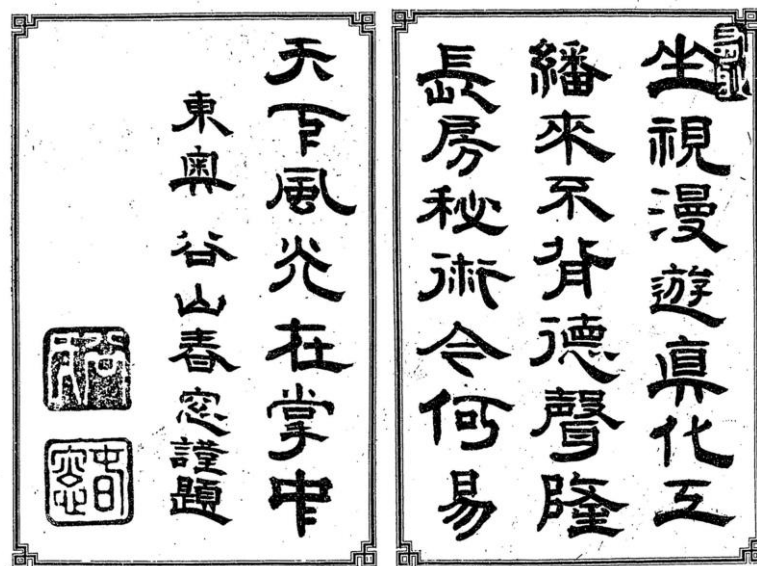 坐視漫遊真化工
繙來不背德聲隆
長房秘術今何易
天下風光在掌中
東奧 谷山春窓謹題